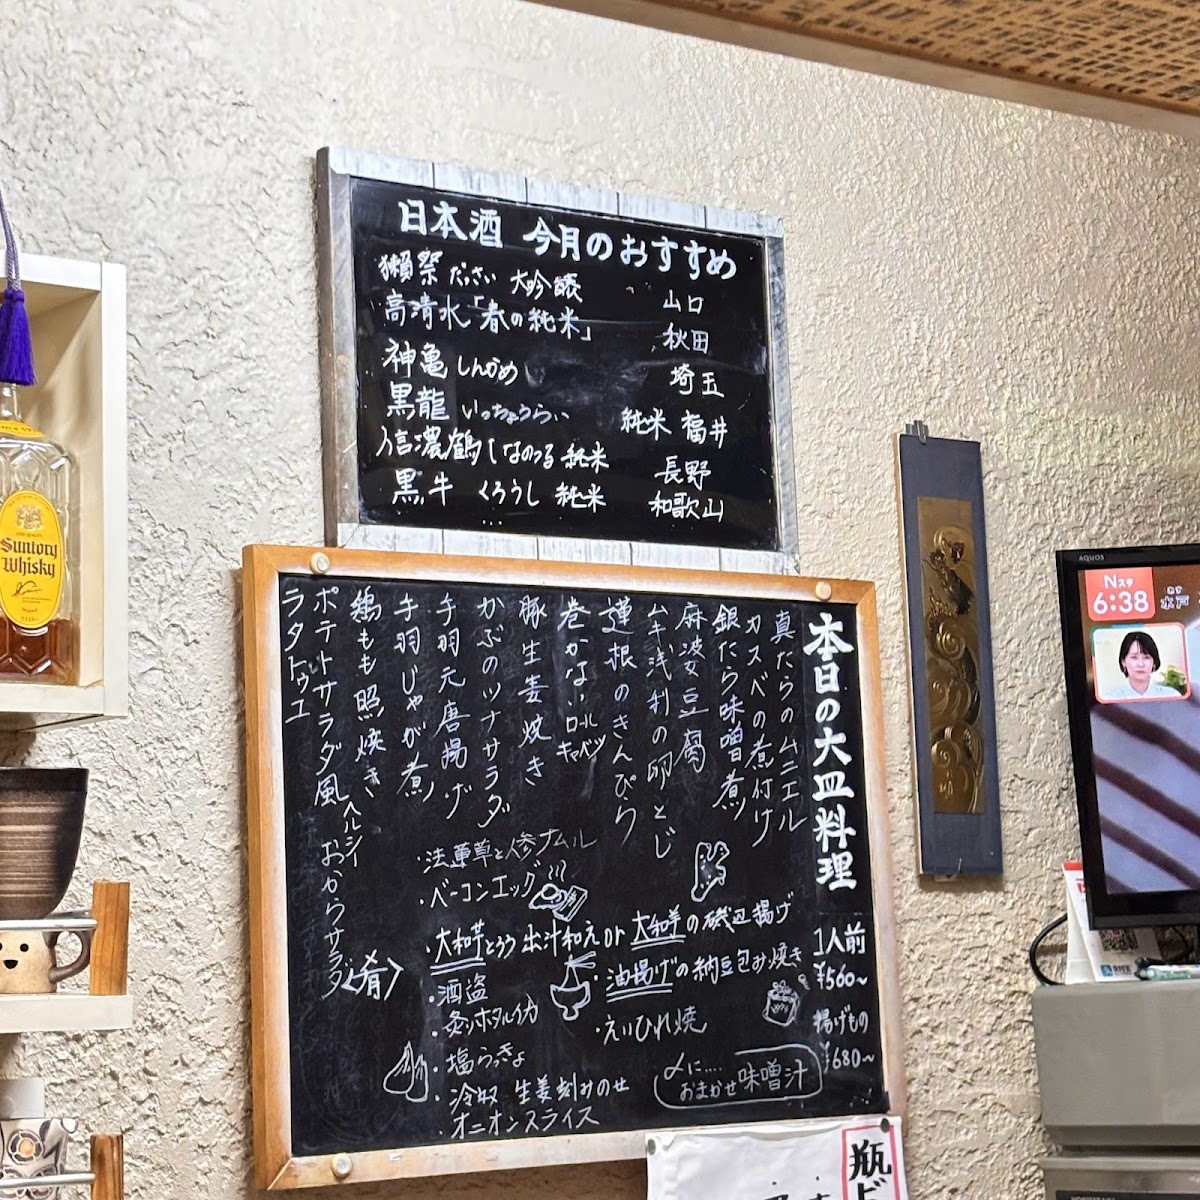 日本酒 今月のおすすめ
獺祭 だっさい 大吟醸 山口
高清水「春の純米」 秋田
神亀 しんかめ 埼玉
黒龍 いっちょうらい 純米 福井
信濃鶴 しなのつる 純米 長野
黒牛 くろうし 純米 和歌山
本日の大皿料理
1人前
¥560~
揚げもの
¥680~
真だらのムニエル
カスベの煮付け
銀だら味噌煮
麻婆豆腐
ムキ浅利の卵とじ
蓮根のきんぴら
巻かないロールキャベツ
豚生姜焼き
かぶのツナサラダ
手羽元唐揚げ
手羽じゃが煮
鶏もも照焼き
ポテトサラダ風 ヘルシー おからサラダ
ラタトゥユ
・法蓮草と人参ナムル
・ベーコンエッグ
〈肴〉
・大和芋とろろ 出汁和え or 大和芋の磯辺揚げ
・酒盗
・油揚げの納豆包み焼き
・炙りホタルイカ
・えいひれ焼
・塩らっきょ
・冷奴 生姜刻みのせ
・オニオンスライス
〆に....
おまかせ味噌汁
Suntory
Whisky
AQUOS
Nスタ
6:38
あす
水戸
瓶ビ